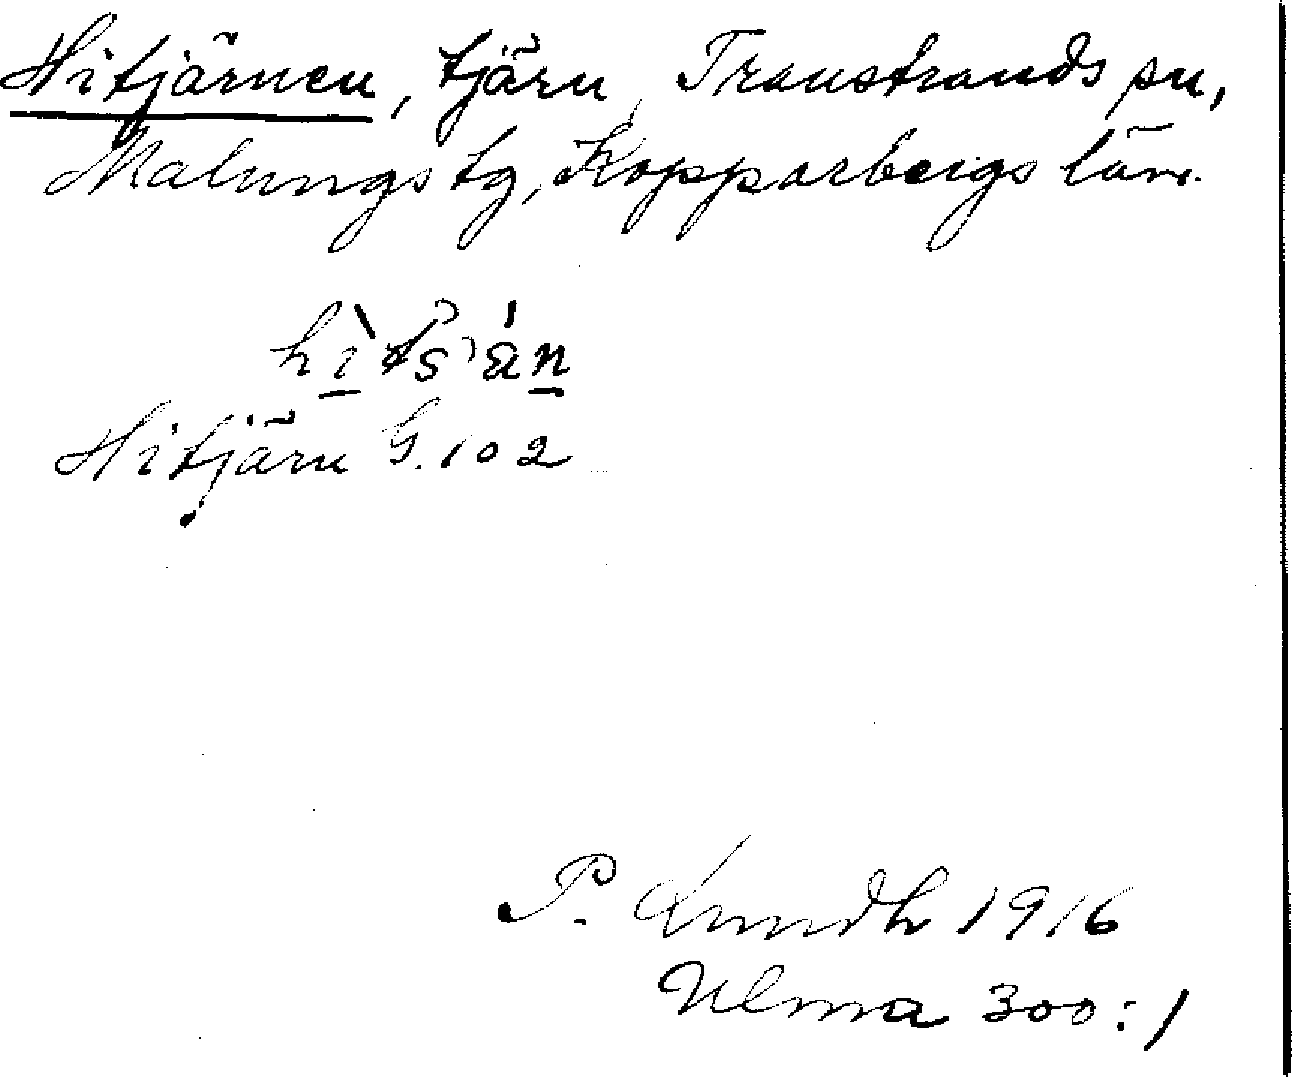 Hitjärnen, tjärn, Transtrands sn,
Malungs tg, Kopparbergs län.
Hitjärn G. 102
P. Lundh 1916
Ulma 300:1